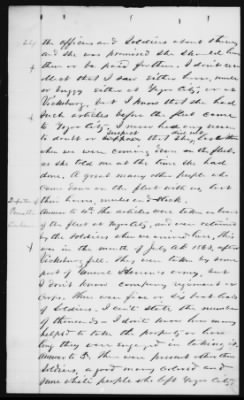 the officers and Soldiers about things
and she was promised she should have
them or be paid for them. I don't recol
lect that I saw either horse, mules
or buggy either at Yazoo City, or at
Vicksburg, but I know that she had
such articles before the fleet came
to Yazoo City. I never had any reason
to doubt or suspect that they
when we were coming down on the fleet,
as she told me at the time she had
done. A great many other people who
came down on the fleet with us, lost
their horses, mules and stock.
Answer to the articles were taken on board
of the fleet at Yazoo City, and were retained
by the Soldiers when we arrived here, this
was in the month of July A.D. 1863, after
Vicksburg fell. They were taken by some
part of General army, but
I don't know company regiment or
Corps. There were five or six boat loads
of Soldiers. I can't state the number
of thousands. I don't know how many
helped to take the property or how
long they were engaged in taking it.
Answer to 5. There were present other than
Soldiers, a good many colored and
some white people who left Yazoo City